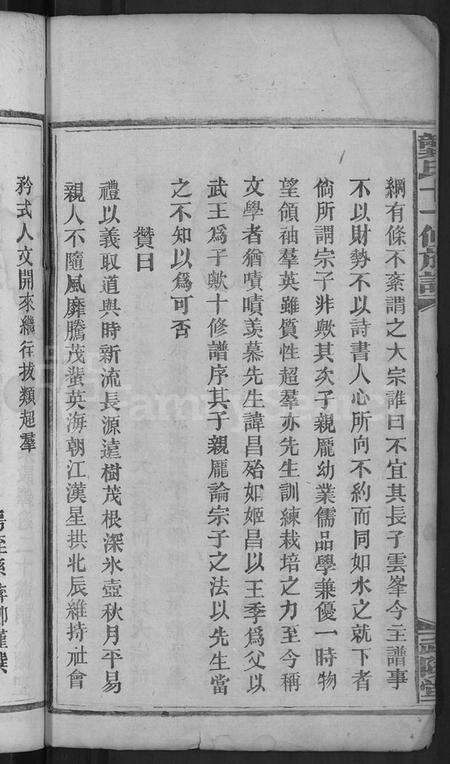 綱有條不紊謂之大宗誰曰不宜其長子雲峯今主譜事
不以財勢不以詩書人心所向不約而同如水之就下者
倘所謂宗子非歟其次子親龐幼業儒品學兼優一時物
望領袖羣英雖質性超羣亦先生訓練栽培之力至今稱
文學者猶嘖嘖羡慕先生諱昌殆如姬昌以王季爲父以
武王爲子歟十修譜序其子親龐論宗子之法以先生當
之不知以爲可否
贊曰
禮以義取道與時新流長源遠樹茂根深氷壺秋月平易
親人不隨風靡騰茂蜚英海朝江漢星拱北辰維持社會
矜式人文開來繼往拔類超羣